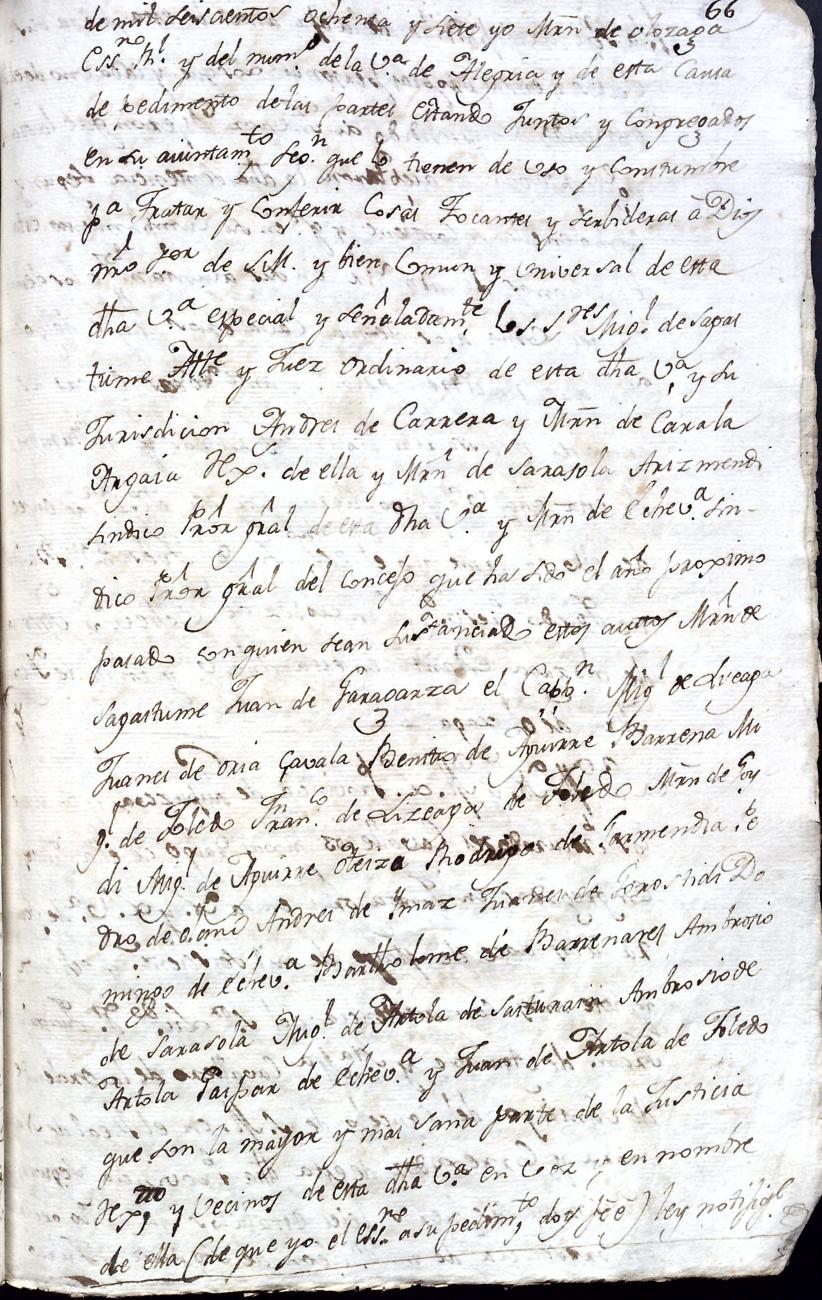 66
de mil seiscientos ochenta y siete yo Mrn de olozaga
Essno Rl y del numo de la Va de Alegria y de esta Causa
de pedimento de las partes estando Juntos y Congregados
en su aiuntamto segn que lo tienen de uso y Constumbre
pa Tratar y Conferir Cosas Tocantes y serbideras â Dios
nro sor de S.M. y bien Comun y universal de esta
dha Va especial y señaladamte los sres Migl de sagas
tume Alle y Juez ordinario de esta dha Va y su
Jurisdicion Andres de Carrera y Mrn de Çavala
Argaia Rexs de ella y Mrn de sarasola Arizmendi
sindico Pror gral de esta dha Va y Mrn de Echeva sin-
dico Pror gral del concejo que ha sido el año proximo
pasado con quien sean sustanciado estos autos Mrn de
sagastume Juan de Garagarza el Cappn Migl de Liçaga
Juanes de oria Çavala Benito de Aguirre Barrena Mi
gl de Toledo Franco de Lizeaga de Toledo Mrn de Goy-
di Migl de Aguirre oteiza Rodrigo de Garmendia Pe
dro de Andres de Ymaz Juanes de Gorostidi Do
mingo de Echeva Bartholome de Barrenares Ambrosio
de sarasola Migl de Artola de sasturain Ambrosio de
Artola Gaspar de Echeva y Juan de Artola de Toledo
que son la mayor y mas sana parte de la Justicia
Rexmo y Vecinos de esta dha Va en voz y en nombre
de ella (de que yo el essno a su pedimto doy fee) ley notifiq